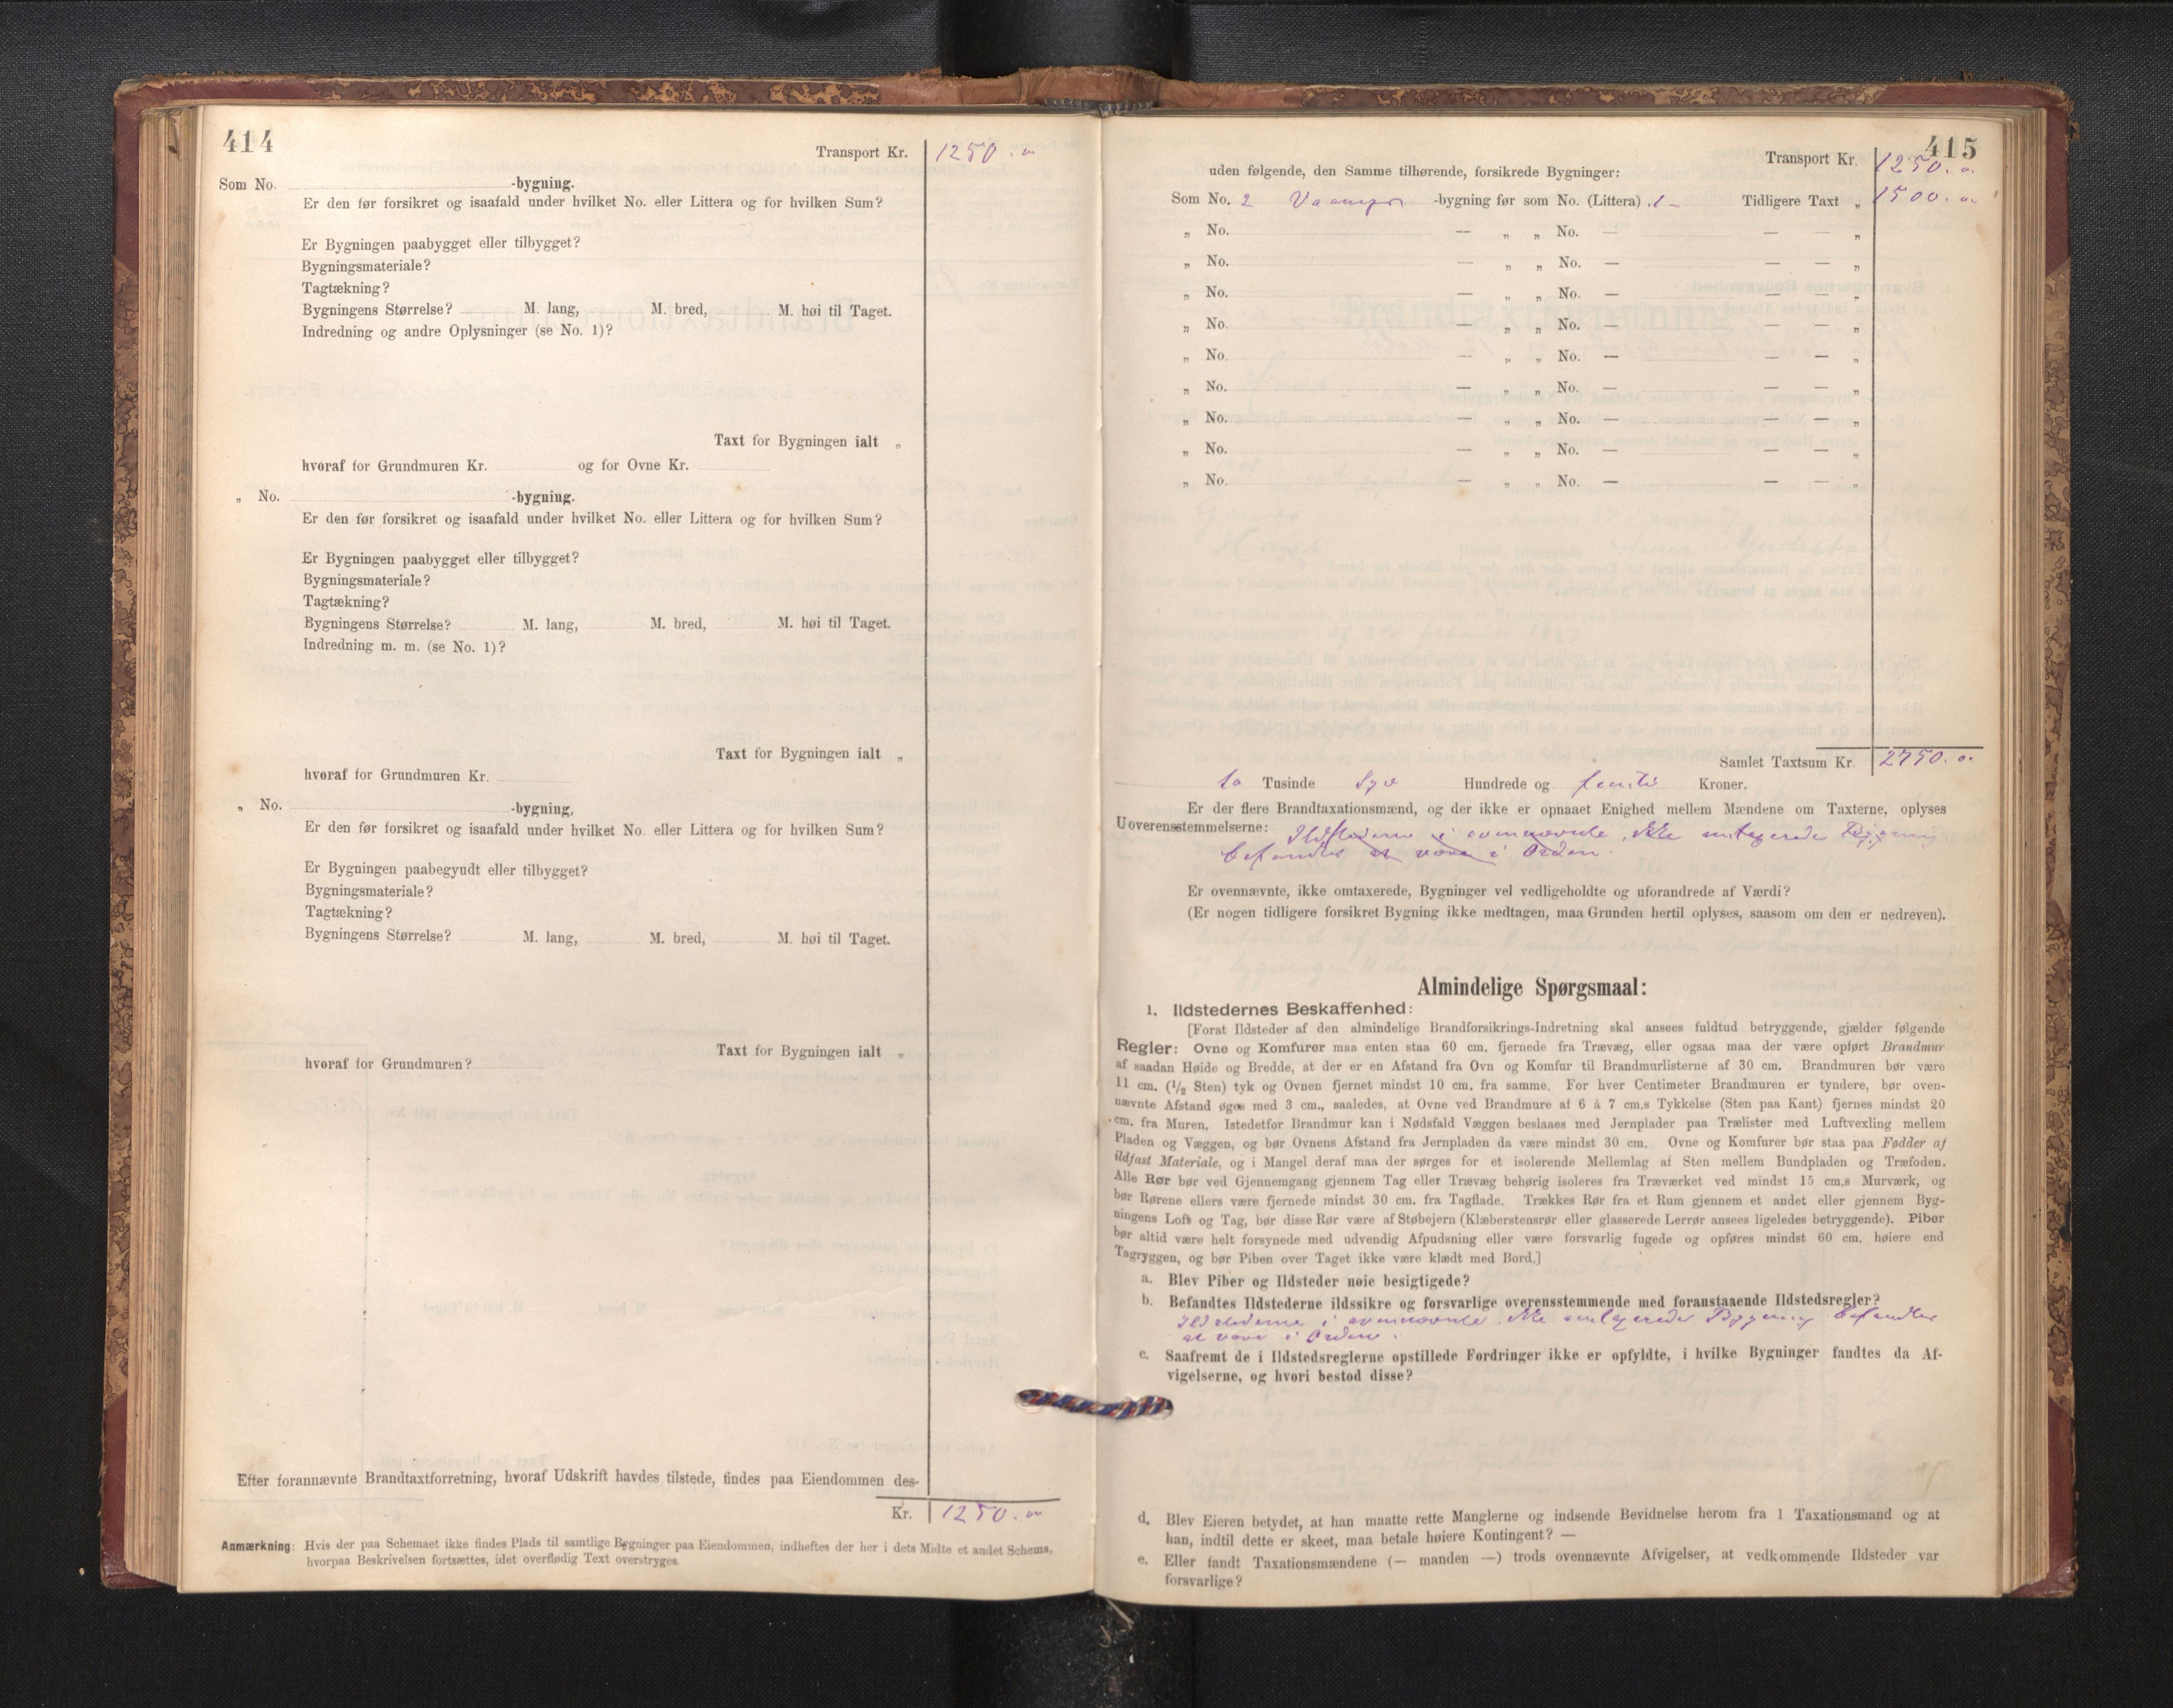 414
Transport Kr. 1250.
Som No. -bygning.
Er den før forsikret og isaafald under hvilket No. eller Littera og for hvilken Sum?
Er Bygningen paabygget eller tilbygget?
Bygningsmateriale?
Tagtækning?
Bygningens Størrelse? M. lang, M. bred, M. høi til Taget.
Indredning og andre Oplysninger (se No. 1)?
Taxt for Bygningen ialt „
hvoraf for Grundmuren Kr. og for Ovne Kr.
„ No. -bygning.
Er den før forsikret og isaafald under hvilket No. eller Littera og for hvilken Sum?
Er Bygningen paabygget eller tilbygget?
Bygningsmateriale?
Tagtækning?
Bygningens Størrelse? M. lang, M. bred, M. høi til Taget.
Indredning m. m. (se No. 1)?
Taxt for Bygningen ialt „
hvoraf for Grundmuren Kr.
„ No. -bygning,
Er den før forsikret og isaafald under hvilket No. eller Littera og for hvilken Sum?
Er Bygningen paabegyndt eller tilbygget?
Bygningsmateriale?
Tagtækning?
Bygningens Størrelse? M. lang, M. bred, M. høi til Taget.
Taxt for Bygningen ialt „
hvoraf for Grundmuren?
Efter forannævnte Brandtaxtforretning, hvoraf Udskrift havdes tilstede, findes paa Eiendommen des-
Kr. 1250.
Anmærkning: Hvis der paa Schemaet ikke findes Plads til samtlige Bygninger paa Eiendommen, indheftes der her i dets Midte et andet Schema,
hvorpaa Beskrivelsen fortsættes, idet overflødig Text overstryges.
415
Transport Kr. 1250.
uden følgende, den Samme tilhørende, forsikrede Bygninger:
Som No. 2 -bygning før som No. (Littera) 1 Tidligere Taxt „ 1500.
„ No. — „ „ No. — — — „
„ No. — „ „ No. — — — „
„ No. — „ „ No. — — — „
„ No. — „ „ No. — — — „
„ No. — „ „ No. — — — „
„ No. — „ „ No. — — — „
„ No. — „ „ No. — — — „
„ No. — „ „ No. — — — „
„ No. — „ „ No. — — — „
Samlet Taxtsum Kr. 2750.
to Tusinde syv Hundrede og femti Kroner.
Er der flere Brandtaxationsmænd, og der ikke er opnaaet Enighed mellem Mændene om Taxterne, oplyses
Uoverensstemmelserne: Ildstederne i ovennævnte ikke omtaxerede Bygning
befandtes at være i Orden.
Er ovennævnte, ikke omtaxerede, Bygninger vel vedligeholdte og uforandrede af Værdi?
(Er nogen tidligere forsikret Bygning ikke medtagen, maa Grunden hertil oplyses, saasom om den er nedreven).
Almindelige Spørgsmaal:
1. Ildstedernes Beskaffenhed:
[Forat Ildsteder af den almindelige Brandforsikrings-Indretning skal ansees fuldtud betryggende, gjælder følgende
Regler: Ovne og Komfurer maa enten staa 60 cm. fjernede fra Trævæg, eller ogsaa maa der være opført Brandmur
af saadan Høide og Bredde, at der er en Afstand fra Ovn og Komfur til Brandmurlisterne af 30 cm. Brandmuren bør være
11 cm. (1/2 Sten) tyk og Ovnen fjernet mindst 10 cm. fra samme. For hver Centimeter Brandmuren er tyndere, bør oven-
nævnte Afstand øges med 3 cm., saaledes, at Ovne ved Brandmure af 6 à 7 cm.s Tykkelse (Sten paa Kant) fjernes mindst 20
cm. fra Muren. Istedetfor Brandmur kan i Nødsfald Væggen beslaaes med Jernplader paa Trælister med Luftvexling mellem
Pladen og Væggen, og bør Ovnens Afstand fra Jernpladen da være mindst 30 cm. Ovne og Komfurer bør staa paa Fødder af
ildfast Materiale, og i Mangel deraf maa der sørges for et isolerende Mellemlag af Sten mellem Bundpladen og Træfoden.
Alle Rør bør ved Gjennemgang gjennem Tag eller Trævæg behørig isoleres fra Træværket ved mindst 15 cm.s Murværk, og
bør Rørene ellers være fjernede mindst 30 cm. fra Tagflade. Trækkes Rør fra et Rum gjennem et andet eller gjennem Byg-
ningens Loft og Tag, bør disse Rør være af Støbejern (Klæberstensrør eller glasserede Lerrør ansees ligeledes betryggende). Piber
bør altid være helt forsynede med udvendig Afpudsning eller være forsvarlig fugede og opføres mindst 60 cm. høiere end
Tagryggen, og bør Piben over Taget ikke være klædt med Bord.]
a. Blev Piber og Ildsteder nøie besigtigede?
b. Befandtes Ildstederne ildssikre og forsvarlige overensstemmende med foranstaaende Ildstedsregler?
Ildstederne i ovennævnte ikke omtaxerede Bygning befandtes
at være i Orden.
c. Saafremt de i Ildstedsreglerne opstillede Fordringer ikke er opfyldte, i hvilke Bygninger fandtes da Af-
vigelserne, og hvori bestod disse?
d. Blev Eieren betydet, at han maatte rette Manglerne og indsende Bevidnelse herom fra 1 Taxationsmand og at
han, indtil dette er skeet, maa betale høiere Kontingent? —
e. Eller fandt Taxationsmændene (— manden —) trods ovennævnte Afvigelser, at vedkommende Ildsteder var
forsvarlige?